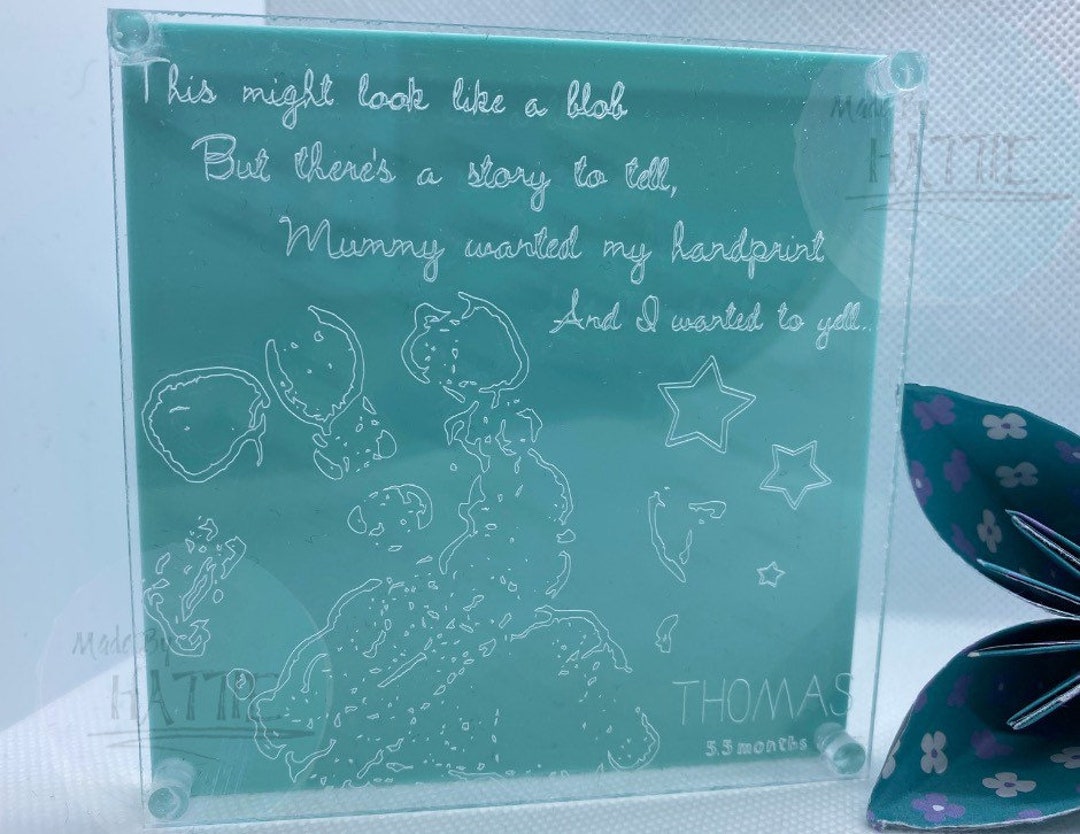 This might look like a blob
But there's a story to tell,
Mummy wanted my handprint
And I wanted to yell..
THOMAS
5.5 months
Made By
HATTIE
Made
HATTIE